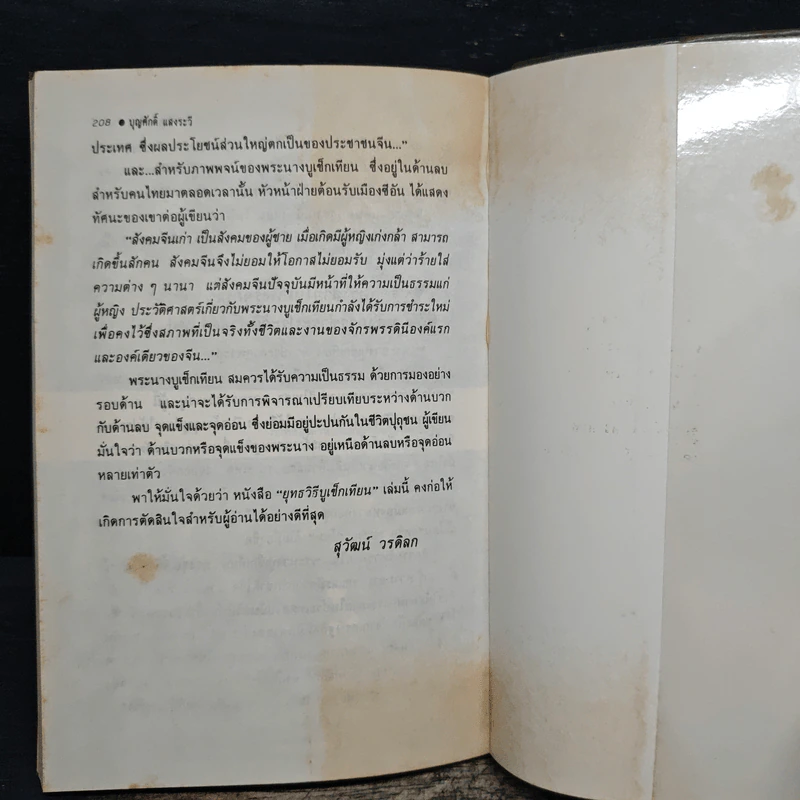 208 ● บุญศักดิ์ แสงระวี
ประเทศ ซึ่งผลประโยชน์ส่วนใหญ่ตกเป็นของประชาชนจีน...”
และ...สำหรับภาพพจน์ของพระนางบูเช็กเทียน ซึ่งอยู่ในด้านลบ
สำหรับคนไทยมาตลอดเวลานั้น หัวหน้าฝ่ายต้อนรับเมืองซีอัน ได้แสดง
ทัศนะของเขาต่อผู้เขียนว่า
“สังคมจีนเก่า เป็นสังคมของผู้ชาย เมื่อเกิดมีผู้หญิงเก่งกล้า สามารถ
เกิดขึ้นสักคน สังคมจีนจึงไม่ยอมให้โอกาสไม่ยอมรับ มุ่งแต่ว่าร้ายใส่
ความต่าง ๆ นานา แต่สังคมจีนปัจจุบันมีหน้าที่ให้ความเป็นธรรมแก่
ผู้หญิง ประวัติศาสตร์เกี่ยวกับพระนางบูเช็กเทียนกำลังได้รับการชำระใหม่
เพื่อคงไว้ซึ่งสภาพที่เป็นจริงทั้งชีวิตและงานของจักรพรรดินีองค์แรก
และองค์เดียวของจีน...”
พระนางบูเช็กเทียน สมควรได้รับความเป็นธรรม ด้วยการมองอย่าง
รอบด้าน และน่าจะได้รับการพิจารณาเปรียบเทียบระหว่างด้านบวก
กับด้านลบ จุดแข็งและจุดอ่อน ซึ่งย่อมมีอยู่ปะปนกันในชีวิตปุถุชน ผู้เขียน
มั่นใจว่า ด้านบวกหรือจุดแข็งของพระนาง อยู่เหนือด้านลบหรือจุดอ่อน
หลายเท่าตัว
พาให้มั่นใจด้วยว่า หนังสือ “ยุทธวิธีบูเช็กเทียน” เล่มนี้ คงก่อให้
เกิดการตัดสินใจสำหรับผู้อ่านได้อย่างดีที่สุด
สุวัฒน์ วรดิลก